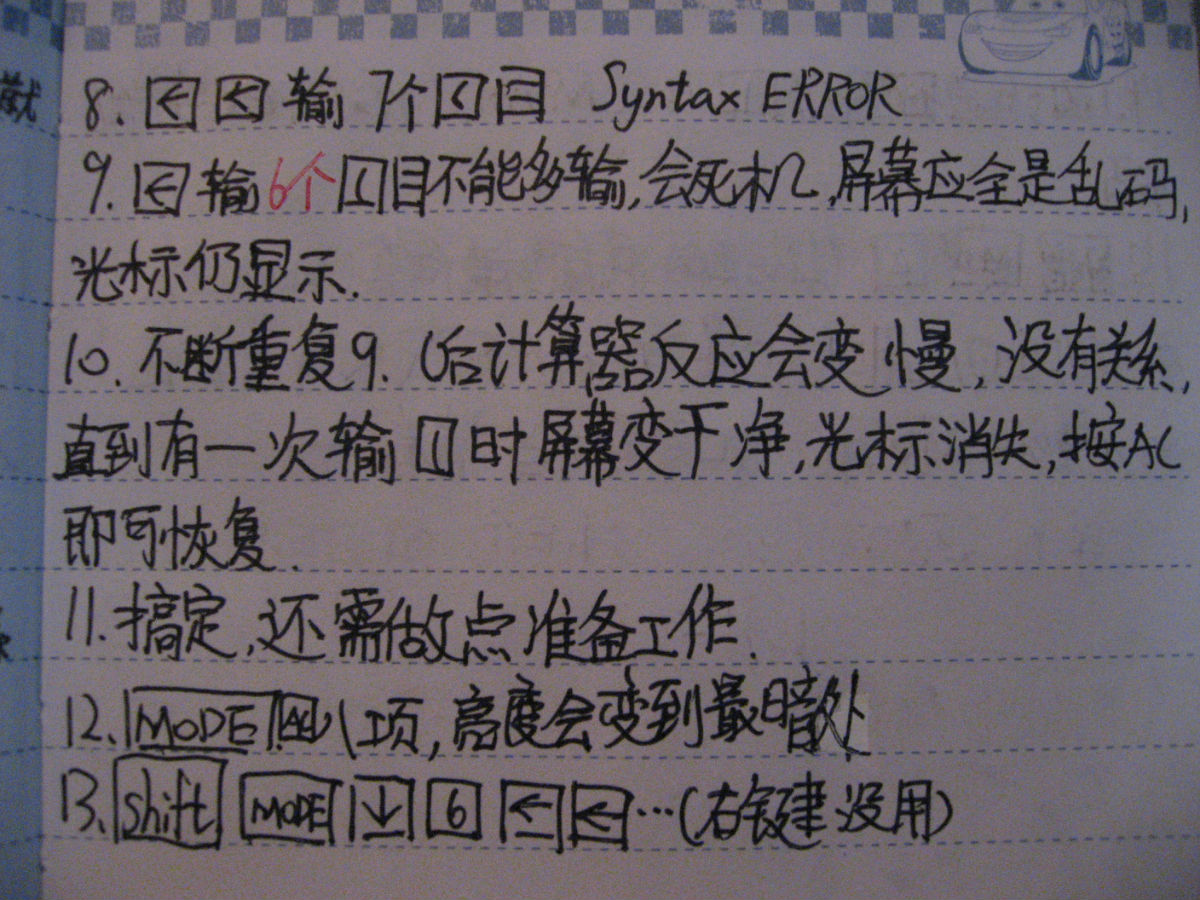 就
8. [←] [←] 输 7个 [(] [=] Syntax ERROR
9. [←] 输 6个 [(] [=] 不能多输,会死机,屏幕应全是乱码,
光标仍显示.
10. 不断重复9. (后计算器反应会变慢,没有关系,
直到有一次输 [(] 时屏幕变干净,光标消失,按AC
即可恢复.
11. 搞定,还需做点准备工作.
12. [MODE] 项,亮度会变到最暗处
13. [Shift] [MODE] [↓] [6] [←] [←] …(右键没用)